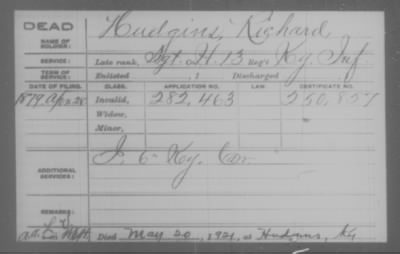 DEAD
NAME OF SOLDIER: Hudgins, Richard
SERVICE: Late rank, Sgt. H. 13 Reg't Ky. Inf.
TERM OF SERVICE: Enlisted , 1 Discharged
DATE OF FILING. CLASS. APPLICATION NO. LAW. CERTIFICATE NO.
1879, Apr. 28 Invalid, 282,463 250,857
Widow,
Minor,
ADDITIONAL SERVICES: J. 6" Ky. Cav
REMARKS:
Died May 20, 1921, at Hudgins, Ky